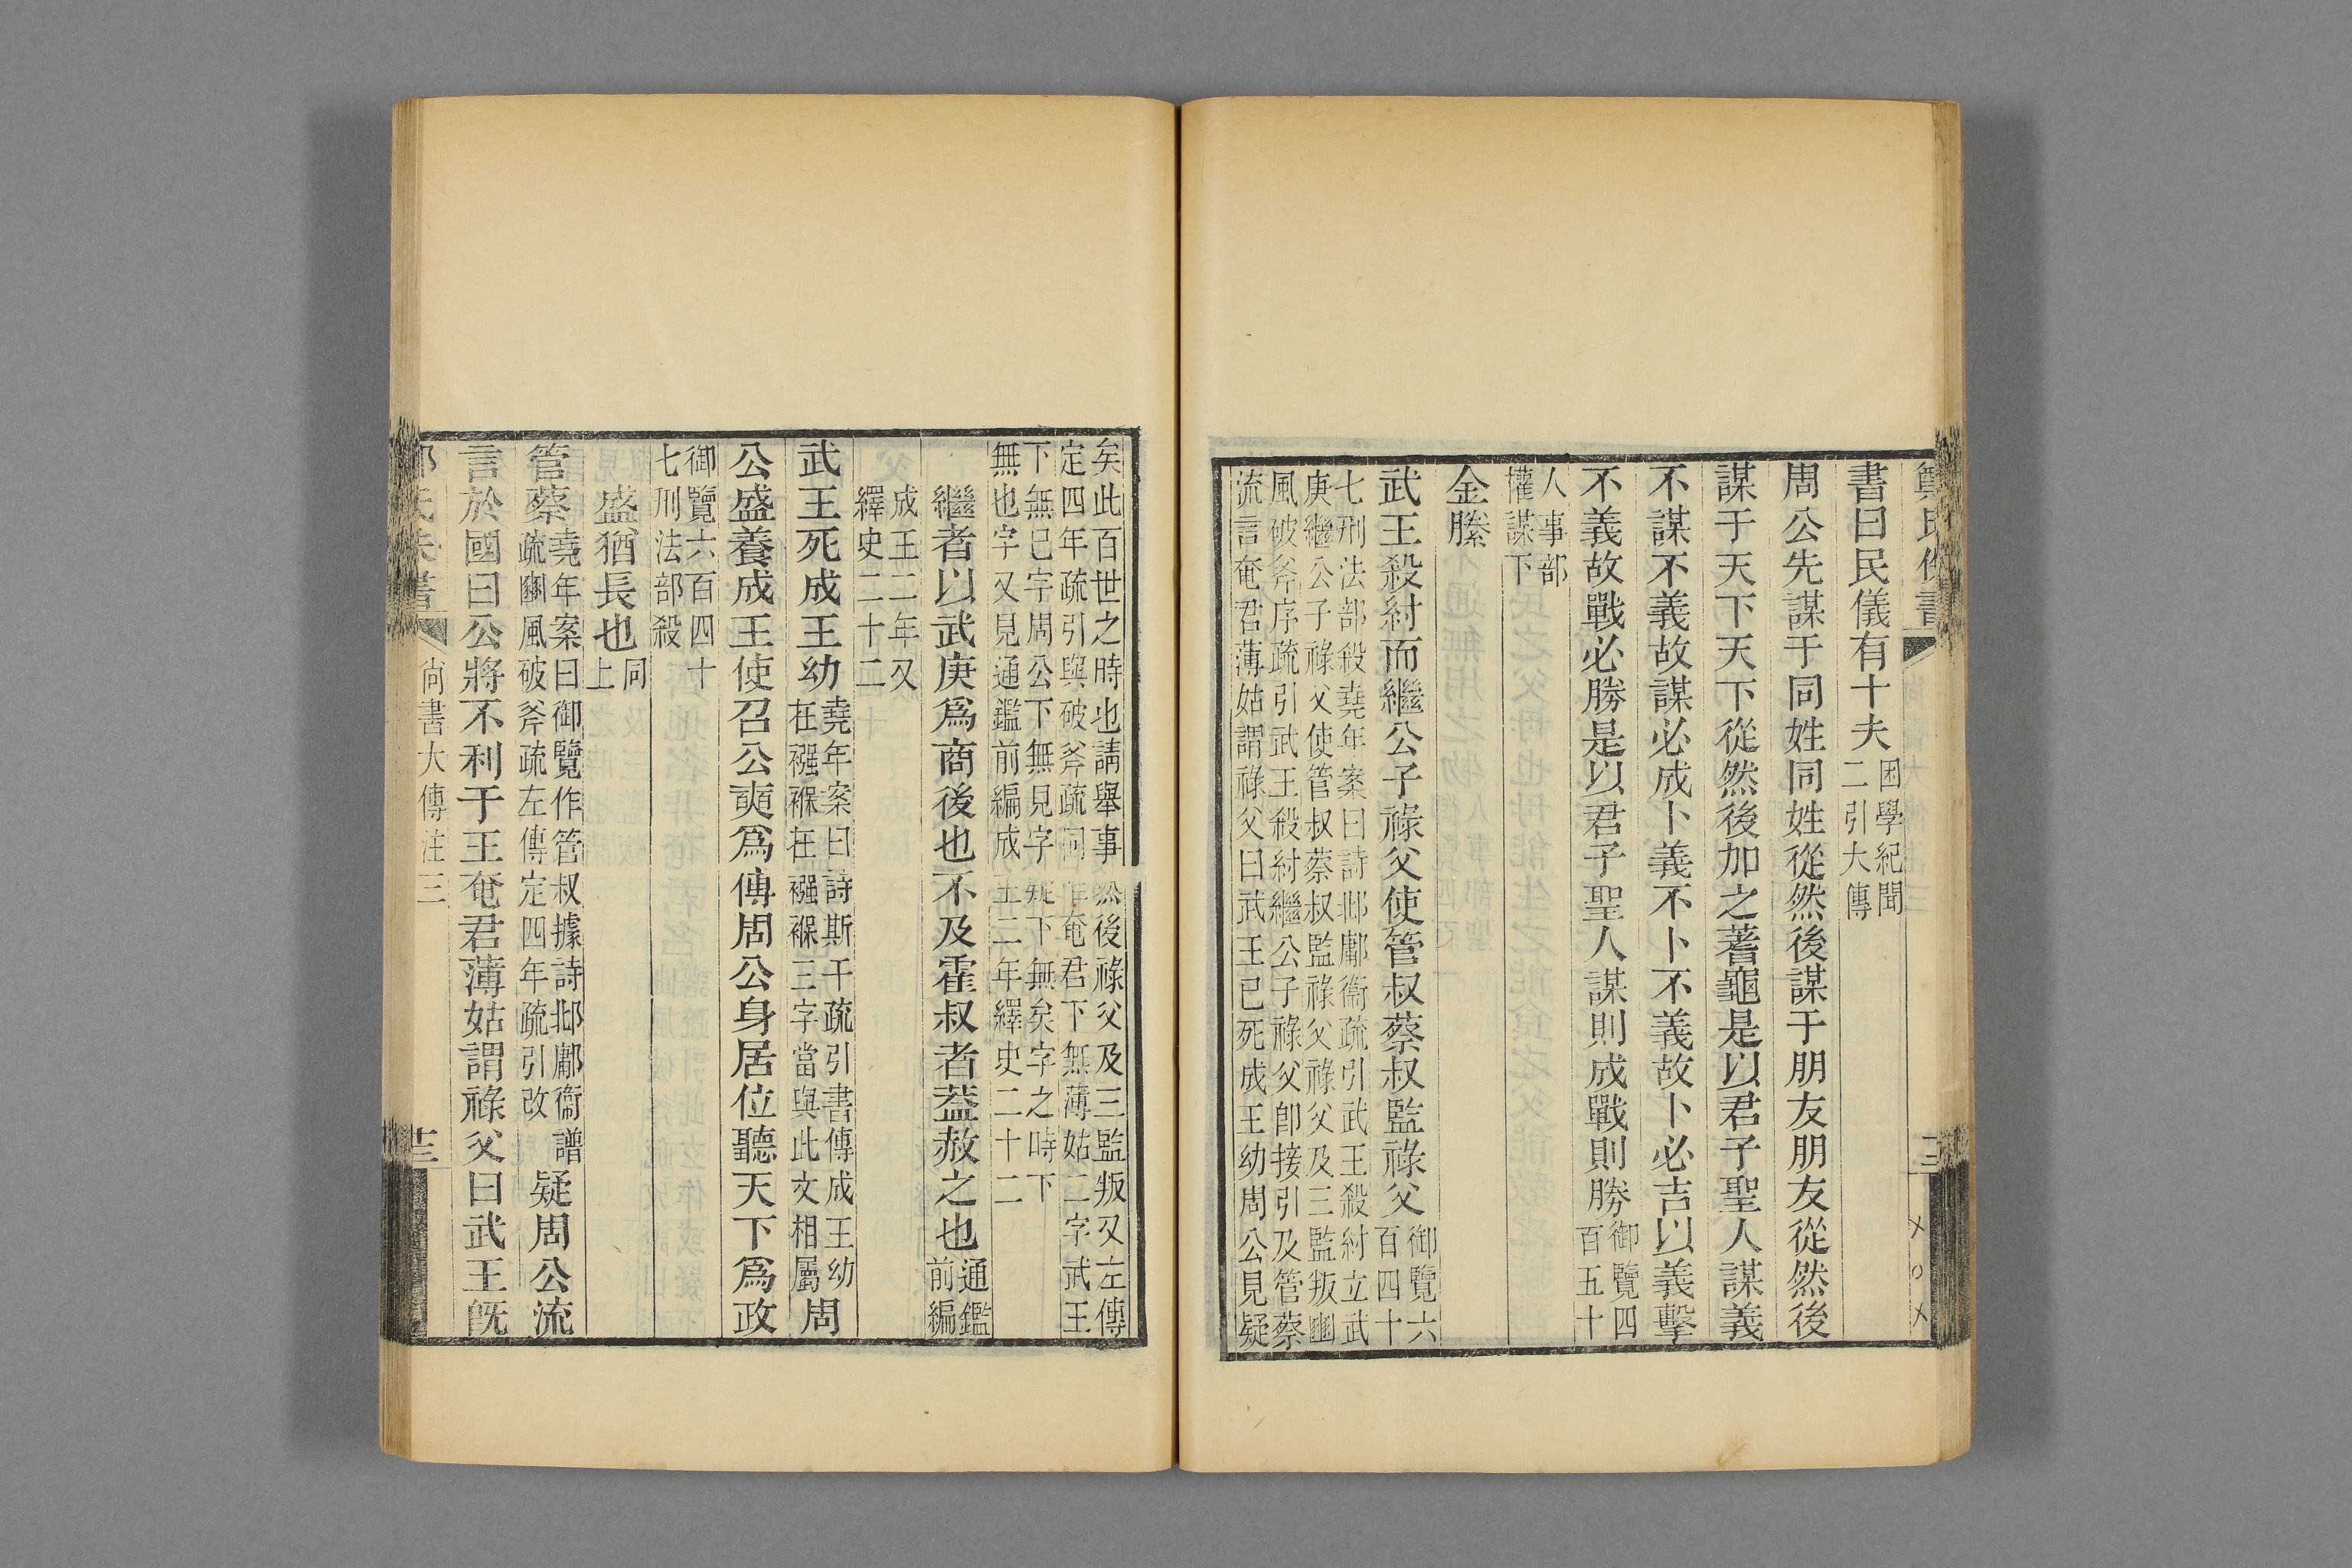 書曰民儀有十夫困學紀聞
二引大傳
周公先謀于同姓同姓從然後謀于朋友朋友從然後
謀于天下天下從然後加之蓍龜是以君子聖人謀義
不謀不義故謀必成卜義不卜不義故卜必吉以義擊
不義故戰必勝是以君子聖人謀則成戰則勝御覽四
百五十
人事部
權謀下
金縢
武王殺紂而繼公子祿父使管叔蔡叔監祿父御覽六
百四十
七刑法部殺堯年案曰詩邶鄘衞疏引武王殺紂立武
庚繼公子祿父使管叔蔡叔監祿父祿父及三監叛豳
風破斧序疏引武王殺紂繼公子祿父卽接引及管蔡
流言奄君薄姑謂祿父曰武王已死成王幼周公見疑
矣此百世之時也請舉事然後祿父及三監叛又左傳
定四年疏引與破斧疏同惟奄君下無薄姑二字武王
下無已字周公下無見字疑下無矣字之時下
無也字又見通鑑前編成王二年繹史二十二
繼者以武庚爲商後也不及霍叔者蓋赦之也通鑑
前編
成王二年又
繹史二十二
武王死成王幼堯年案曰詩斯干疏引書傳成王幼
在襁褓在襁褓三字當與此文相屬周
公盛養成王使召公奭爲傅周公身居位聽天下爲政
御覽六百四十
七刑法部殺
盛猶長也同
上
管蔡堯年案曰御覽作管叔據詩邶鄘衞譜
疏豳風破斧疏左傳定四年疏引改疑周公流
言於國曰公將不利于王奄君薄姑謂祿父曰武王旣
尚書大傳注三